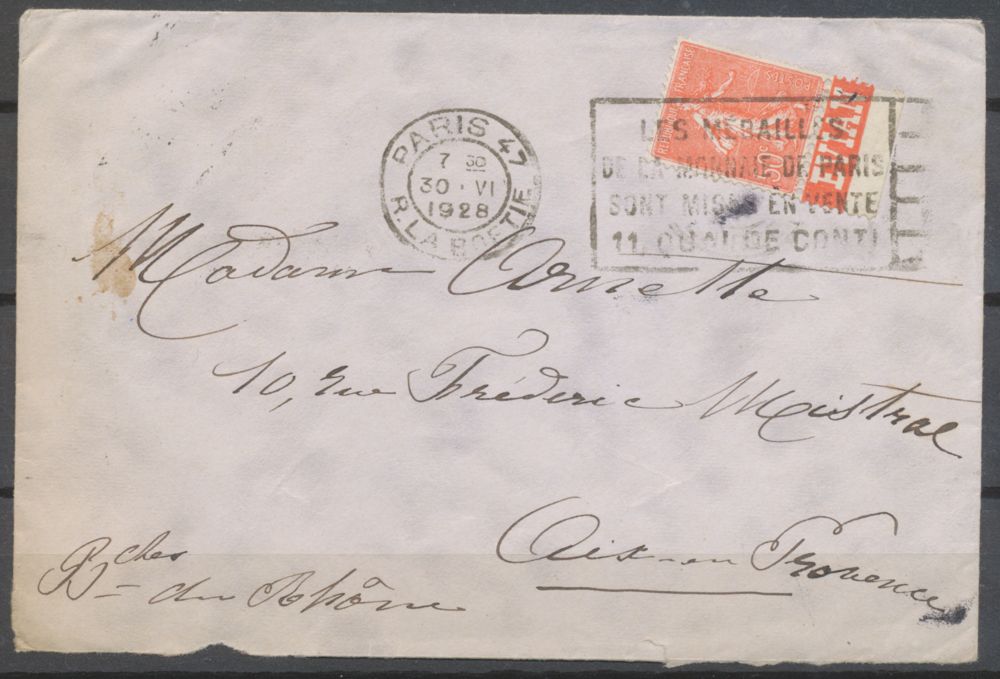 PARIS 47
7 30
30 · VI
1928
R. LA BOETIE
RÉPUBLIQUE FRANÇAISE
POSTES
50c
EVIAN
LES MEDAILLES
DE LA MONNAIE DE PARIS
SONT MISES EN VENTE
11, QUAI DE CONTI
Madame Arnette
10, rue Fréderic Mistral
Aix-en Provence
Bches du Rhône